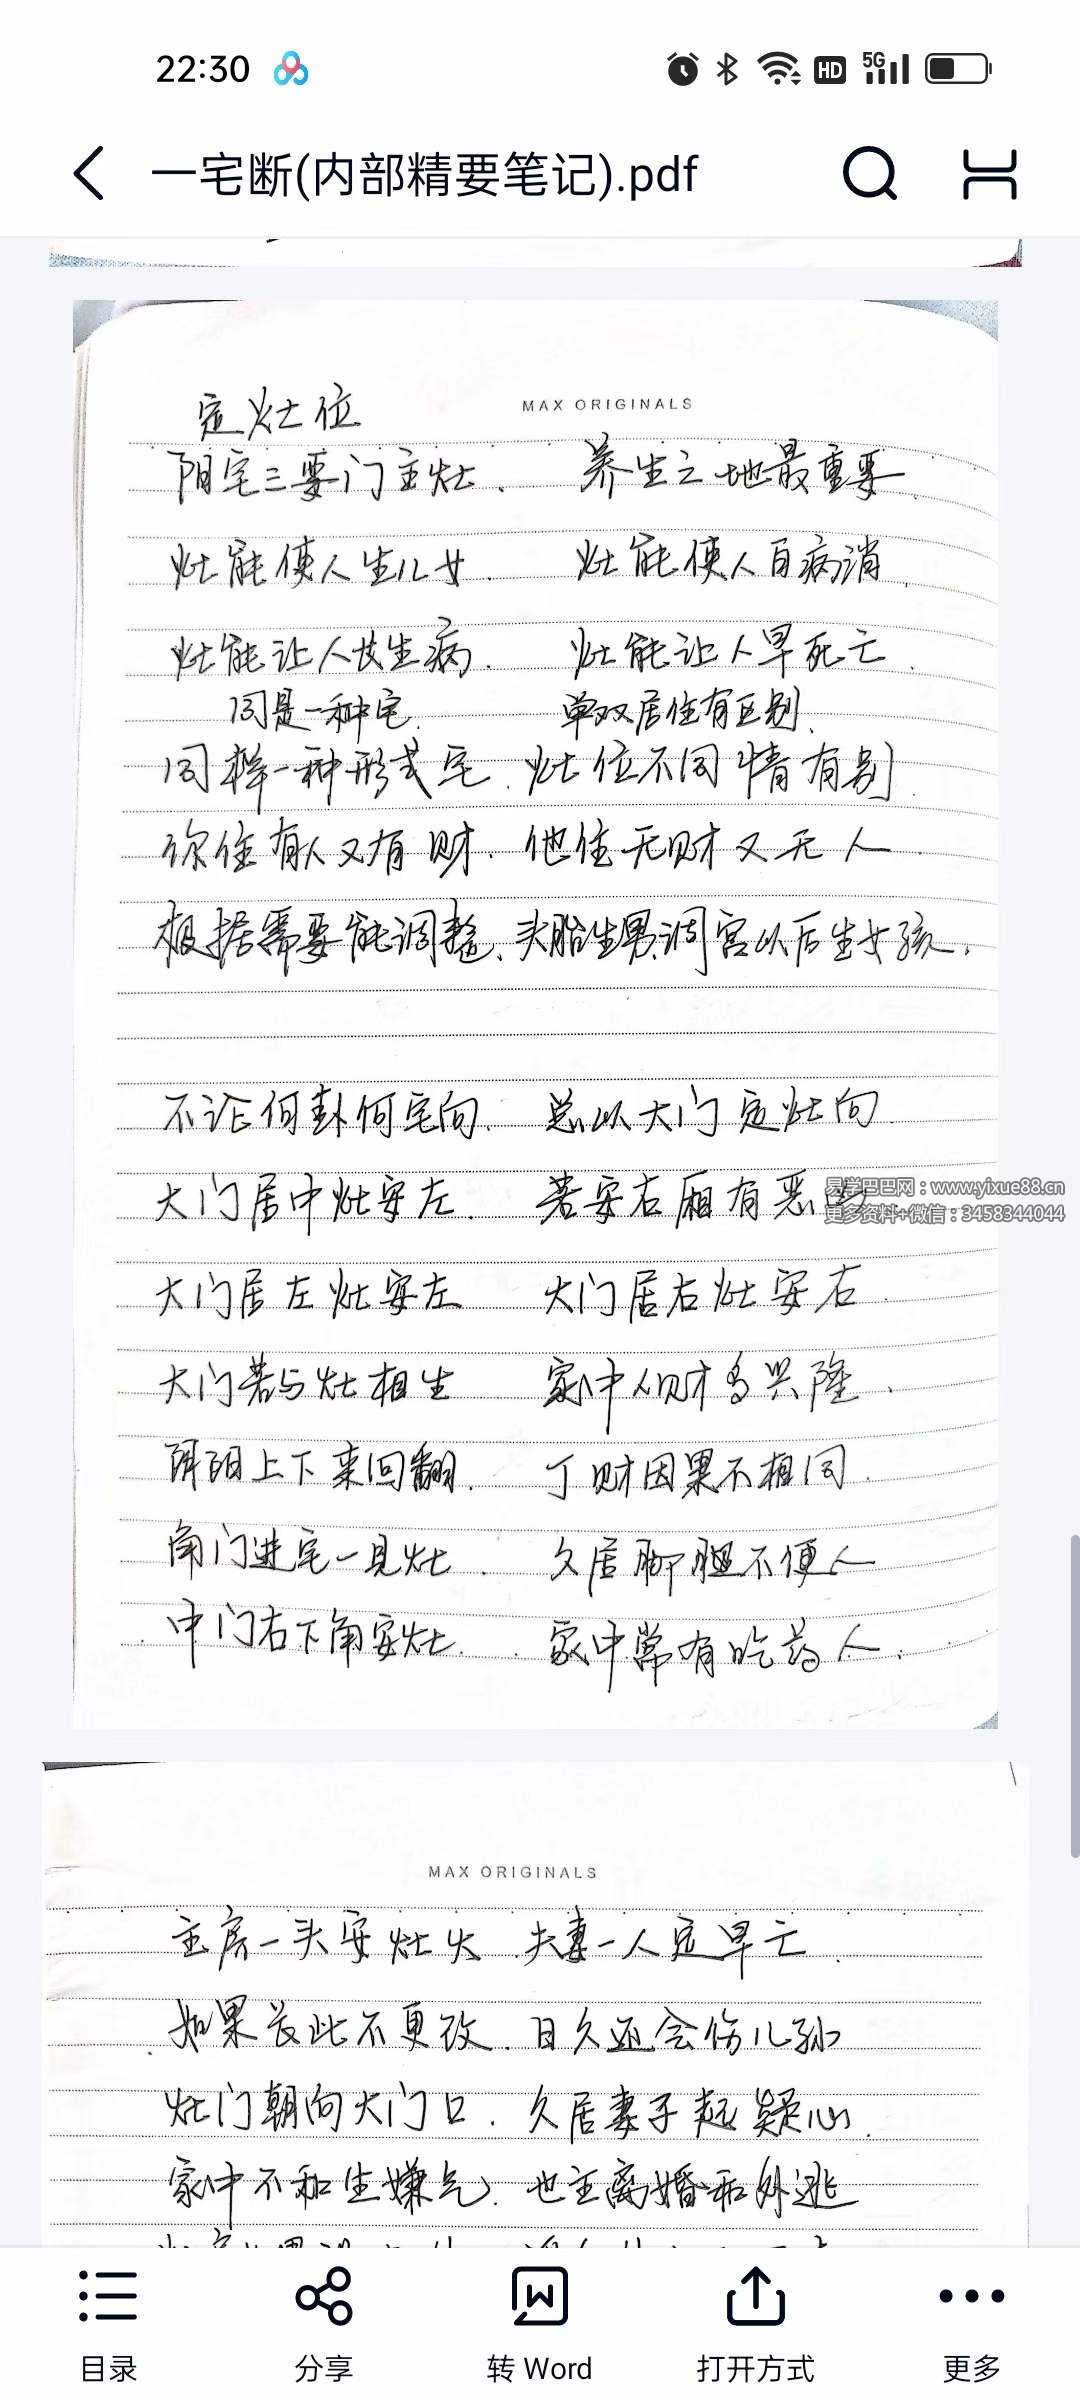 22:30
HD 5G
一宅断(内部精要笔记).pdf
MAX ORIGINALS
定灶位
阳宅三要门主灶. 养生之地最重要.
灶能使人生儿女. 灶能使人百病消.
灶能让人发生病. 灶能让人早死亡.
同是一种宅. 单双居住有区别.
同样一种形式宅. 灶位不同情有别.
你住有人又有财. 他住无财又无人.
根据需要能调整. 头胎生男调宫以后生女孩.
不论何卦何宅向. 总以大门定灶向.
大门居中灶安左. 若安右厢有恶
易学巴巴网：www.yixue88.cn
更多资料+微信：3458344044
大门居左灶安左 大门居右灶安右.
大门若与灶相生 家中人财多兴隆.
阴阳上下来回翻. 丁财因果不相同.
南门进宅一见灶. 久居脚腿不便人
中门右下角安灶. 家中常有吃药人.
MAX ORIGINALS
主房一头安灶火 夫妻一人定早亡.
如果长此不更改. 日久还会伤儿孙
灶门朝向大门口. 久居妻子起疑心.
家中不和生嫌气. 也主离婚和外逃
目录 分享 转 Word 打开方式 更多